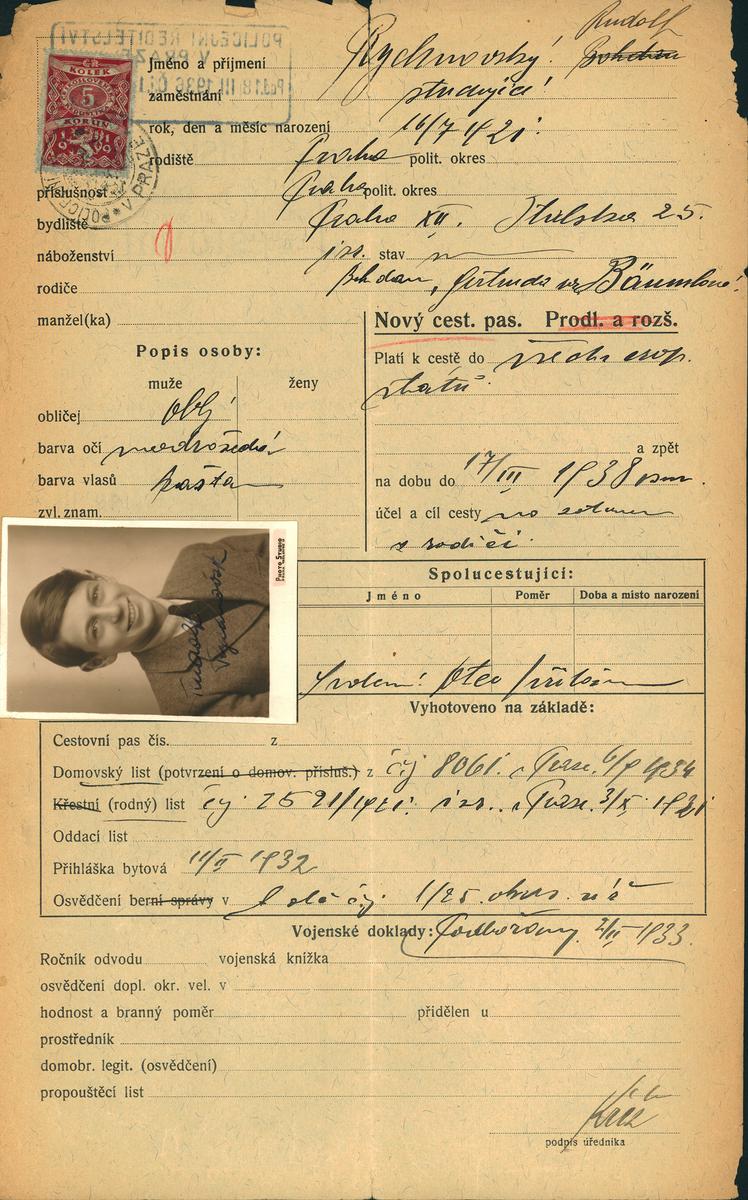 POLICEJNÍ ŘEDITELSTVÍ
V PRAZE
18 III 1936
ČR
KOLEK
5
KORUN
V PRAZE
Rudolf
Jméno a příjmení Rychnovský Bohdan
zaměstnání studující
rok, den a měsíc narození 16/7 1921
rodiště Praha polit. okres
příslušnost Praha polit. okres
bydliště Praha XII. Italská 25.
náboženství isr. stav
rodiče Bohdan, Gertruda roz Bäumlová
manžel(ka)
Nový cest. pas. Prodl. a rozš.
Popis osoby:
muže ženy
obličej obl
barva očí modrošedá
barva vlasů kaštan
zvl. znam.
Platí k cestě do všech evrop.
států
a zpět
na dobu do 17/III 1938
účel a cíl cesty
s rodiči
PHOTO STUDIO
Rudolf
Rychnovský
Spolucestující:
Jméno Poměr Doba a místo narození
Otec
Vyhotoveno na základě:
Cestovní pas čís. z
Domovský list (potvrzení o domov. přísluš.) z čj 8061. 1934
Křestní (rodný) list čj 2521/1921 isr. 1921
Oddací list
Přihláška bytová 1932
Osvědčení berní správy v čj 1/25. okres. úř
Podbořany 1933
Vojenské doklady:
Ročník odvodu vojenská knížka
osvědčení dopl. okr. vel. v
hodnost a branný poměr přidělen u
prostředník
domobr. legit. (osvědčení)
propouštěcí list
podpis úředníka